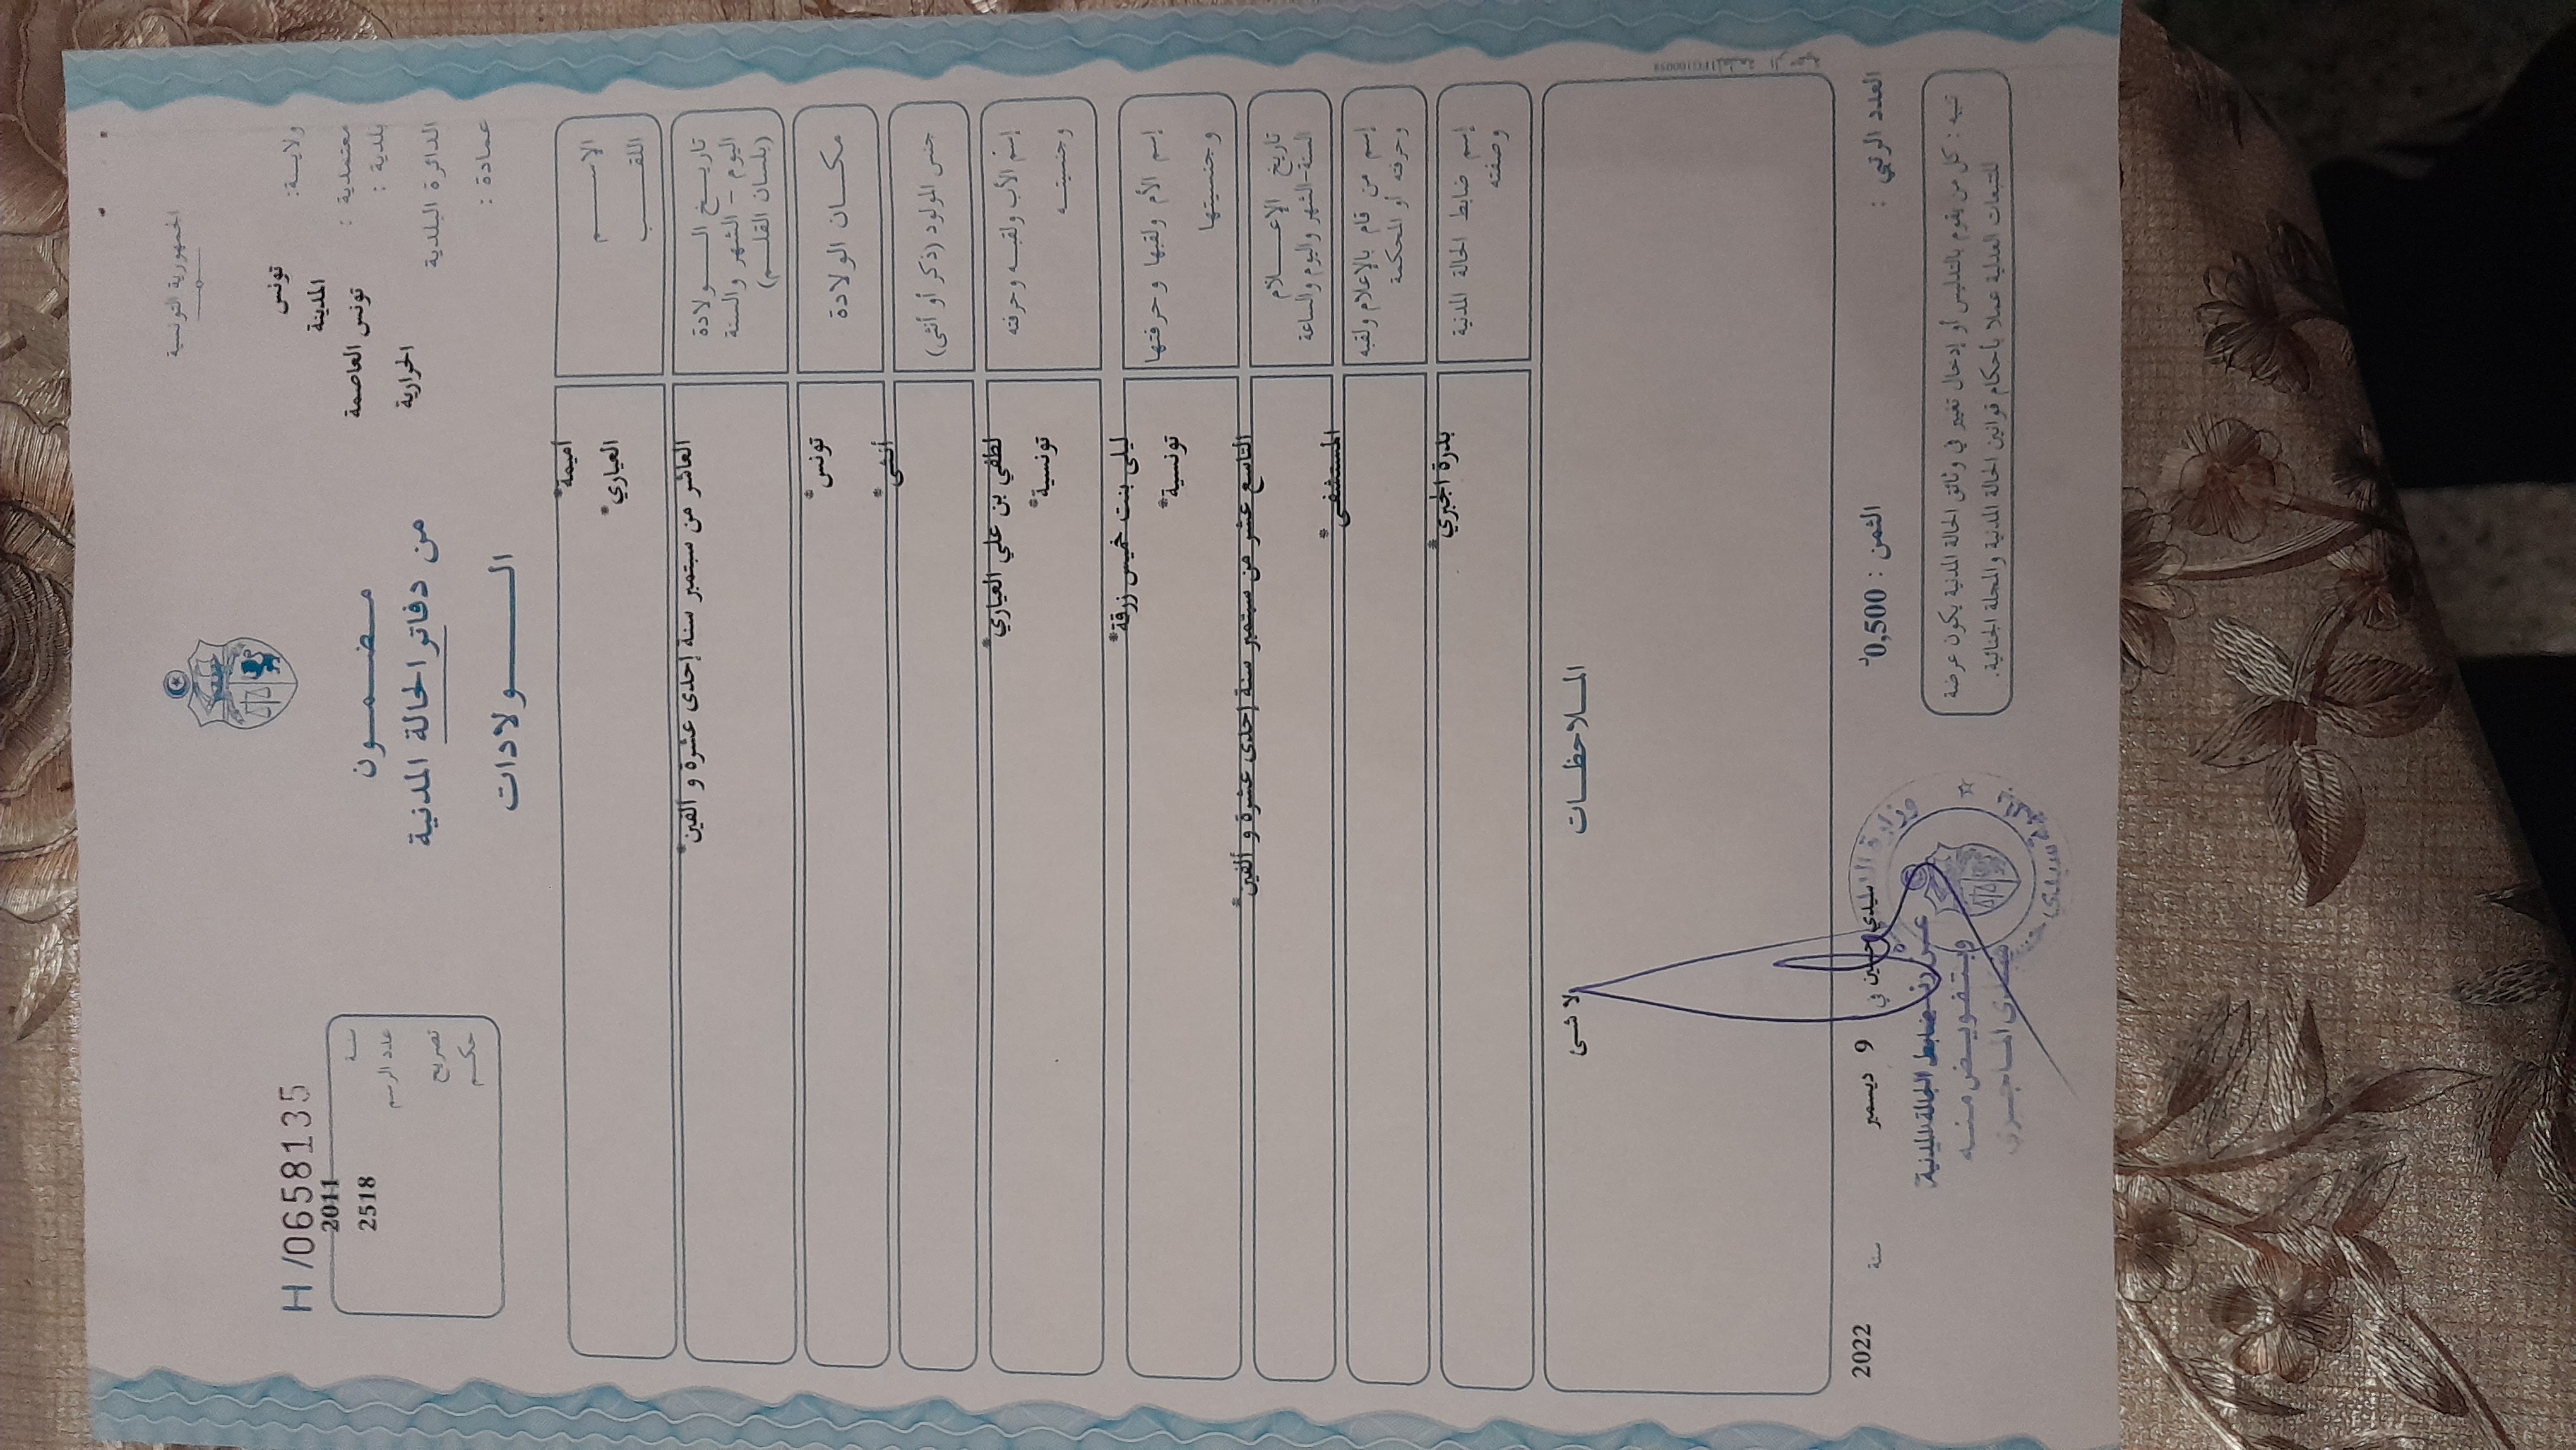 الجمهورية التونسية
ولايـــة: تونس
معتمدية : المدينة
بلدية : تونس العاصمة
الدائرة البلدية الحرايرية
عمادة :
H/0658135
سنـة 2011
عدد الرسم 2518
تصريح
حكـم
مـضـمـون
من دفاتر الحالة المدنية
الـولادات
الاســم *أميمة
اللقــب *العياري
تاريــخ الـــولادة
اليوم - الشهر والسنة
(بلسان القلـم)
*العاشر من سبتمبر سنة إحدى عشرة و ألفين
مكــان الولادة *تونس
جنس المولود (ذكر أو أنثى) *أنثى
إسم الأب ولقبـه وحرفته *لطفي بن علي العياري
وجنسيتــه *تونسية
إسم الأم ولقبها وحرفتها *ليلى بنت خميس زرقة
وجنسيتها *تونسية
تاريخ الإعـــلام
السنة-الشهر واليوم والساعة
*التاسع عشر من سبتمبر سنة إحدى عشرة و ألفين
إسم من قام بالإعلام ولقبه
وحرفته أو المحكمة
*المستشفى
إسم ضابط الحالة المدنية
وصفته
*بدرة الجبري
المـلاحظـات
لا شئ
العدد الرتبي :
الثمن : 0,500د
سيدي حسين في 9 ديسمبر سنة 2022
تنبيه : كل من يقوم بالتدليس أو إدخال تغيير في وثائق الحالة المدنية يكون عرضة
للتتبعات العدلية عملا بأحكام قوانين الحالة المدنية والمجلة الجنائية.
عـن ضابط الحالة المدنية
وبتفويـض منـه
وزارة